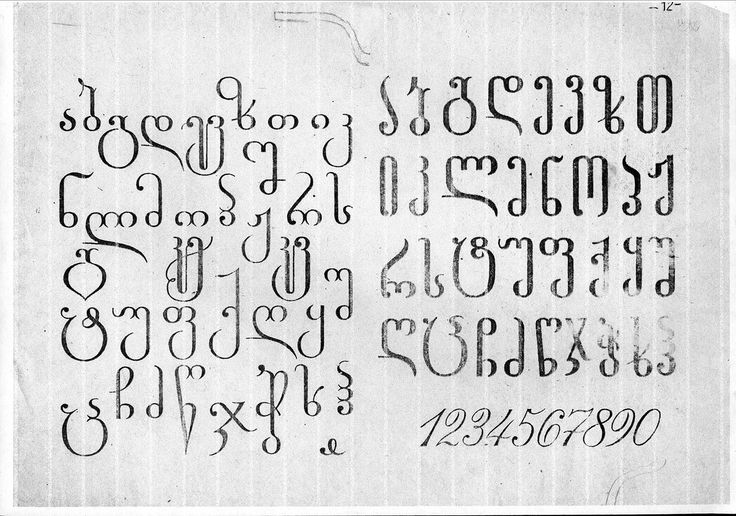 აბგდევზთიკ
ნლმოპჟრს
ტუფქღყშ
ცჩძწჯჭხჰ
-12-
აბგდევზთ
იკლმნოპჟ
რსტუფქყშ
ღცჩძწჯჭხჰ
1234567890